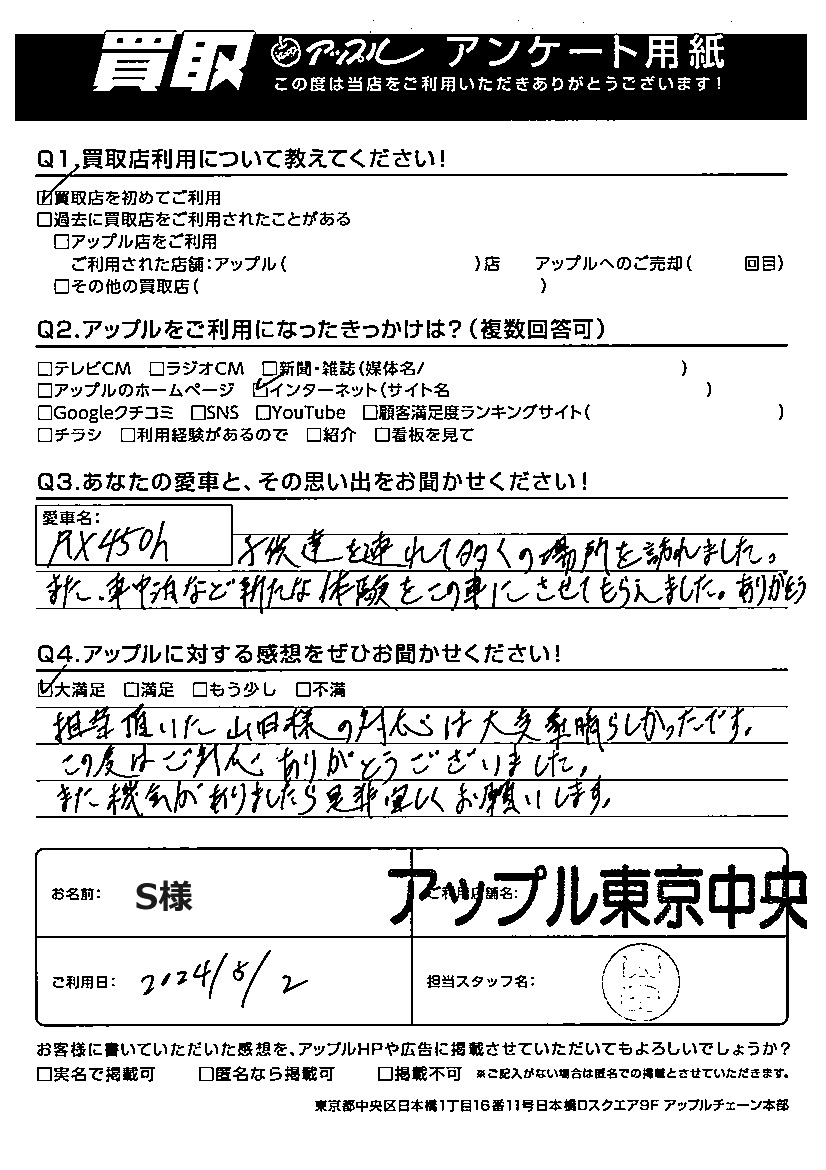 買取 アップル アンケート用紙
この度は当店をご利用いただきありがとうございます!
Q1.買取店利用について教えてください!
☑買取店を初めてご利用
□過去に買取店をご利用されたことがある
□アップル店をご利用
ご利用された店舗:アップル( )店 アップルへのご売却( 回目)
□その他の買取店( )
Q2.アップルをご利用になったきっかけは?(複数回答可)
□テレビCM □ラジオCM □新聞・雑誌(媒体名/ )
□アップルのホームページ ☑インターネット(サイト名 )
□Googleクチコミ □SNS □YouTube □顧客満足度ランキングサイト( )
□チラシ □利用経験があるので □紹介 □看板を見て
Q3.あなたの愛車と、その思い出をお聞かせください!
愛車名:
RX450h 子供達を連れて多くの場所を訪れました。
また、車中泊など新たな体験をこの車にさせてもらえました。ありがとう
Q4.アップルに対する感想をぜひお聞かせください!
☑大満足 □満足 □もう少し □不満
担当頂いた山田様の対応は大変素晴らしかったです。
この度はご対応ありがとうございました。
また機会がありましたら是非宜しくお願いします。
お名前: S様 ご利用店舗名: アップル東京中央
ご利用日: 2024/5/2 担当スタッフ名:
お客様に書いていただいた感想を、アップルHPや広告に掲載させていただいてもよろしいでしょうか?
□実名で掲載可 □匿名なら掲載可 □掲載不可 ※ご記入がない場合は匿名での掲載とさせていただきます。
東京都中央区日本橋1丁目16番11号日本橋Dスクエア9F アップルチェーン本部